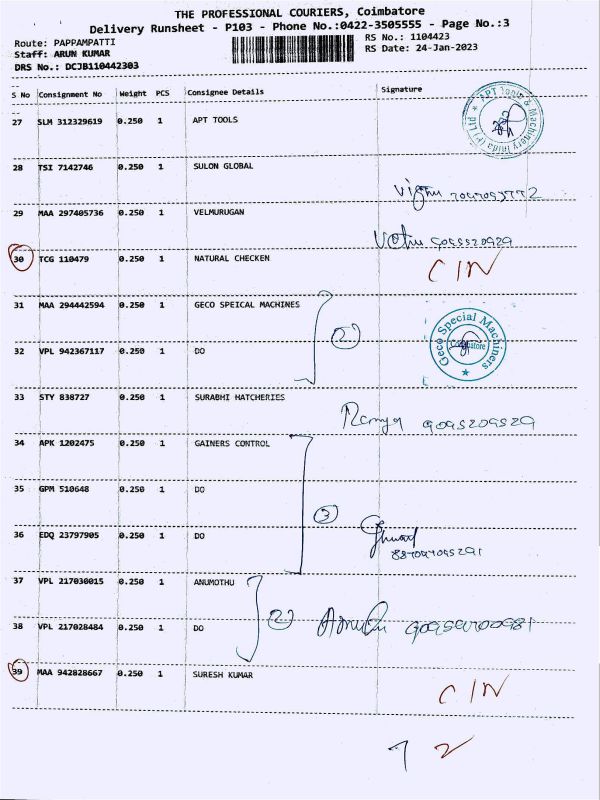 THE PROFESSIONAL COURIERS, Coimbatore
Delivery Runsheet - P103 - Phone No.:0422-3505555 - Page No.:3
Route: PAPPAMPATTI RS No.: 1104423
Staff: ARUN KUMAR RS Date: 24-Jan-2023
DRS No.: DCJB110442303
S No Consignment No Weight PCS Consignee Details Signature
27 SLM 312329619 0.250 1 APT TOOLS
APT Tools & Machinery India (P) Ltd
28 TSI 7142746 0.250 1 SULON GLOBAL
29 MAA 297405736 0.250 1 VELMURUGAN
30 TCG 110479 0.250 1 NATURAL CHECKEN
C/N
31 MAA 294442594 0.250 1 GECO SPEICAL MACHINES
2
Geco Special Machiners
Coimbatore
32 VPL 942367117 0.250 1 DO
33 STY 838727 0.250 1 SURABHI HATCHERIES
Ramya 9095209529
34 APK 1202475 0.250 1 GAINERS CONTROL
35 GPM 510648 0.250 1 DO
3
36 EDQ 23797905 0.250 1 DO
37 VPL 217030015 0.250 1 ANUMOTHU
2
38 VPL 217028484 0.250 1 DO
39 MAA 942828667 0.250 1 SURESH KUMAR
C/N
7 2